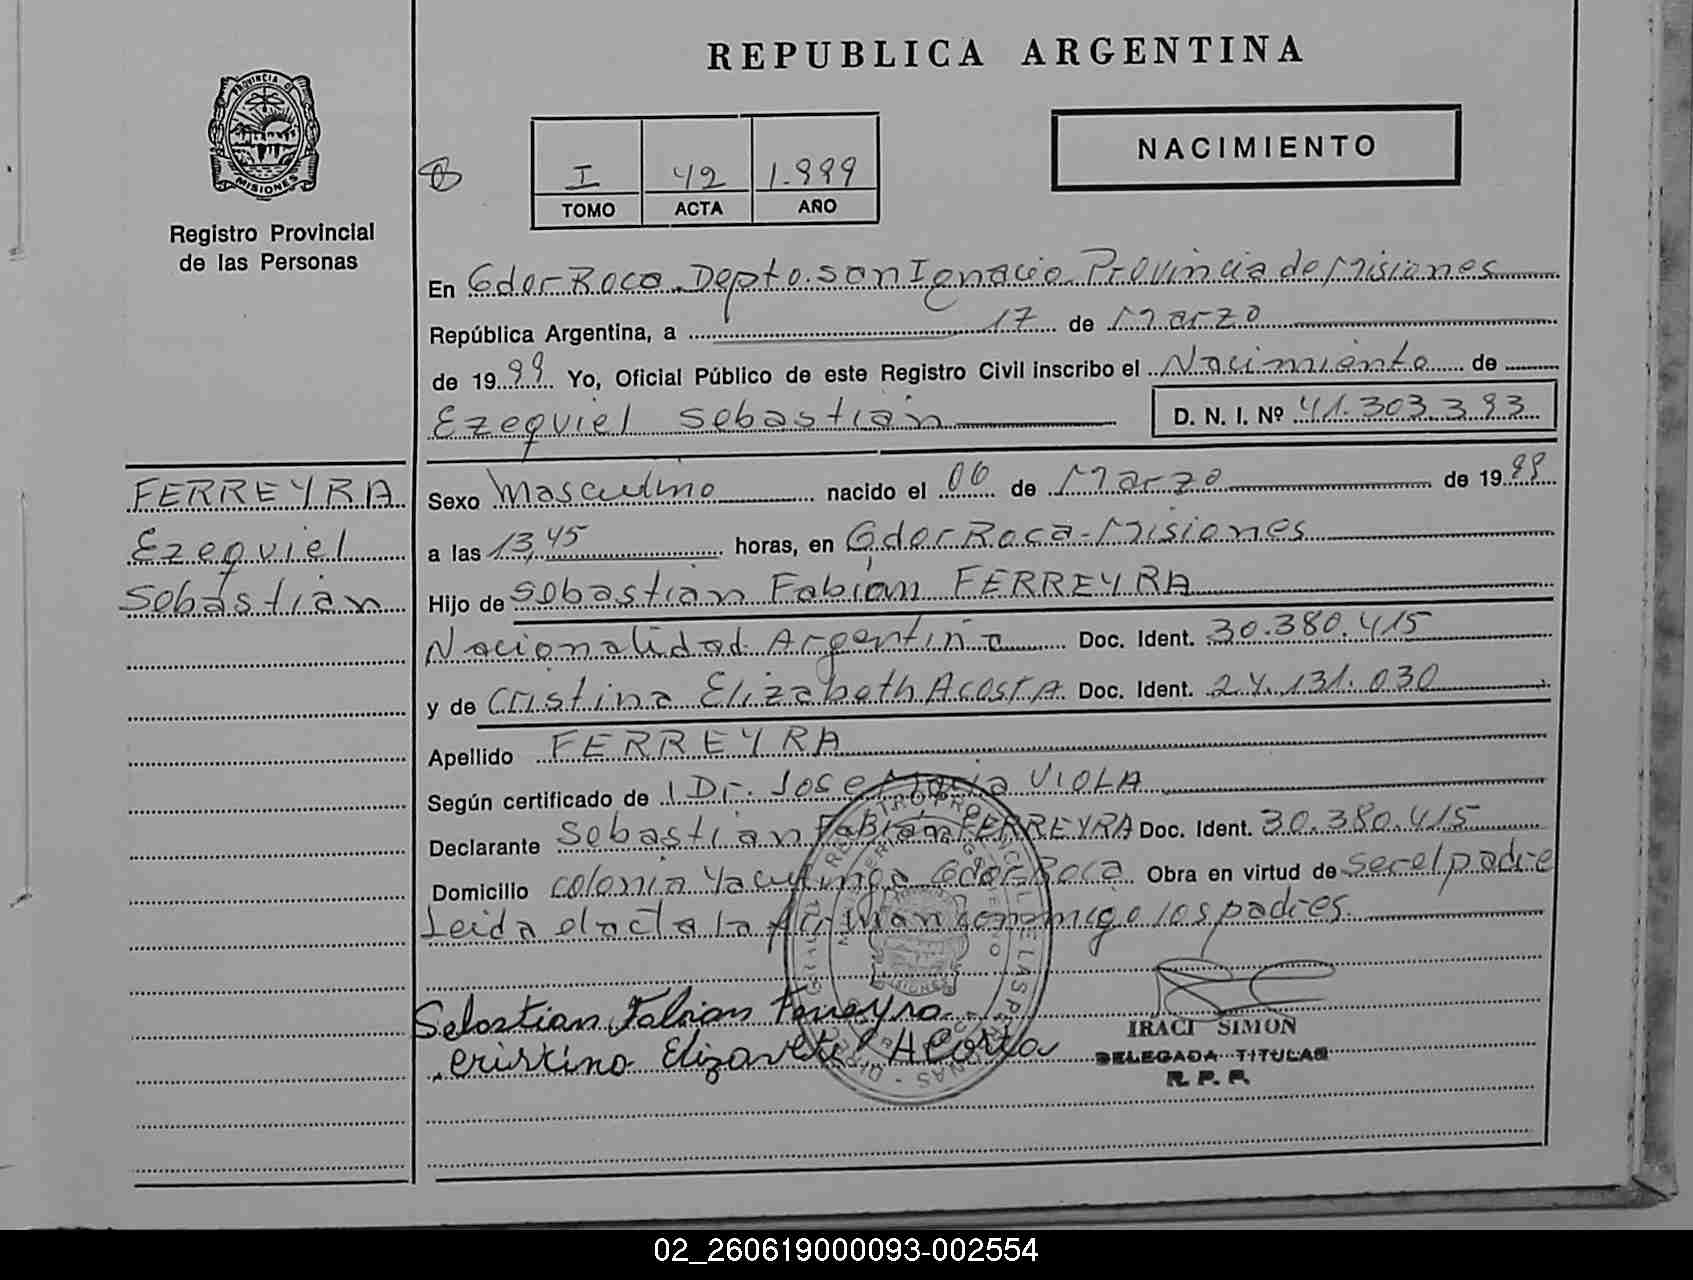 REPUBLICA ARGENTINA
PROVINCIA DE
MISIONES
Registro Provincial
de las Personas
NACIMIENTO
I 42 1.999
TOMO ACTA AÑO
En Gdor Roca Depto. San Ignacio Provincia de Misiones
República Argentina, a 17 de Marzo
de 1999 Yo, Oficial Público de este Registro Civil inscribo el Nacimiento de
Ezequiel Sebastián D. N. I. Nº 41.303.393
FERREYRA
Ezequiel
Sebastián
Sexo Masculino nacido el 06 de Marzo de 1999
a las 13,45 horas, en Gdor Roca - Misiones
Hijo de Sebastián Fabián FERREYRA
Nacionalidad Argentina Doc. Ident. 30.380.415
y de Cristina Elizabeth ACOSTA Doc. Ident. 24.131.030
Apellido FERREYRA
Según certificado de Dr. José María VIOLA
Declarante Sebastián Fabián FERREYRA Doc. Ident. 30.380.415
Domicilio Colonia Yacutinga Gdor Roca Obra en virtud de ser el padre
Leida el acta la firman conmigo los padres
Sebastian Fabian Ferreyra
Cristina Elizavete Acosta
IRACI SIMON
DELEGADA TITULAR
R. P. P.
02_260619000093-002554